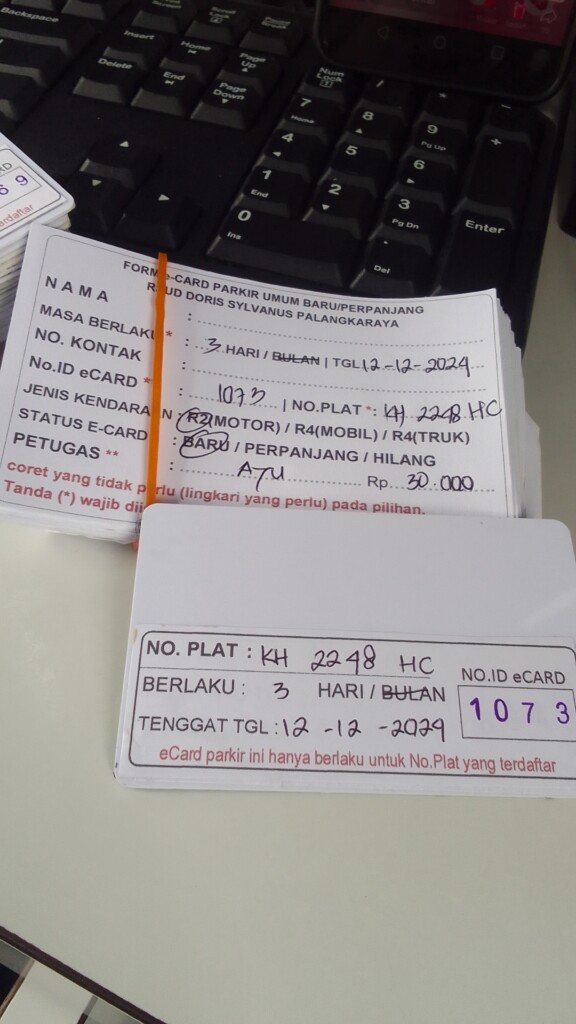 Backspace
Insert
Home
Page Up
Delete
End
Page Down
Num Lock
7 Home
8
9 Pg Up
+
4
5
6
1 End
2
3 Pg Dn
Enter
0 Ins
. Del
69
FORM e-CARD PARKIR UMUM BARU/PERPANJANG
RSUD DORIS SYLVANUS PALANGKARAYA
NAMA :
MASA BERLAKU * : 3 HARI / BULAN | TGL 12-12-2024
NO. KONTAK :
No.ID eCARD * : 1073 | NO.PLAT *: KH 2248 HC
JENIS KENDARAAN R2(MOTOR) / R4(MOBIL) / R4(TRUK)
STATUS E-CARD : BARU / PERPANJANG / HILANG
PETUGAS ** : AYU Rp 30.000
coret yang tidak perlu (lingkari yang perlu) pada pilihan.
Tanda (*) wajib
NO. PLAT : KH 2248 HC
BERLAKU : 3 HARI / BULAN
TENGGAT TGL : 12 -12 -2024
NO.ID eCARD
1073
eCard parkir ini hanya berlaku untuk No.Plat yang terdaftar